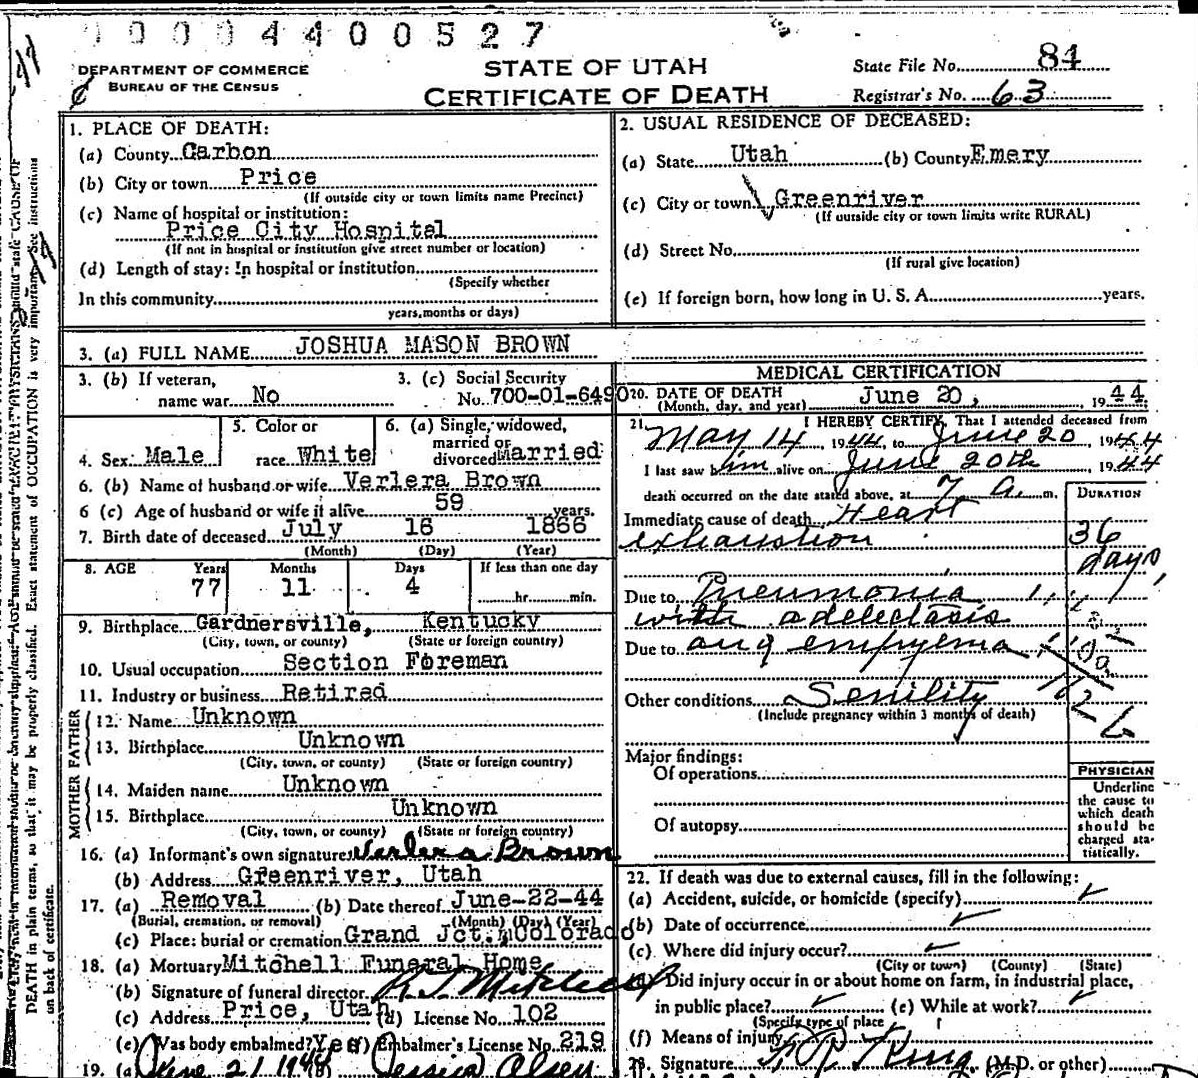 0 0 0 0 4 4 0 0 5 2 7
DEPARTMENT OF COMMERCE
BUREAU OF THE CENSUS
STATE OF UTAH
CERTIFICATE OF DEATH
State File No. 84
Registrar's No. 63
1. PLACE OF DEATH:
(a) County Carbon
(b) City or town Price
(If outside city or town limits name Precinct)
(c) Name of hospital or institution:
Price City Hospital
(If not in hospital or institution give street number or location)
(d) Length of stay: In hospital or institution
(Specify whether
In this community
years, months or days)
2. USUAL RESIDENCE OF DECEASED:
(a) State Utah (b) County Emery
(c) City or town Greenriver
(If outside city or town limits write RURAL)
(d) Street No.
(If rural give location)
(e) If foreign born, how long in U. S. A. years.
3. (a) FULL NAME JOSHUA MASON BROWN
3. (b) If veteran, name war No
3. (c) Social Security No. 700-01-6490
4. Sex Male
5. Color or race White
6. (a) Single, widowed, married or divorced Married
6. (b) Name of husband or wife Verlera Brown
6 (c) Age of husband or wife if alive 59 years.
7. Birth date of deceased July 16 1866
(Month) (Day) (Year)
8. AGE Years Months Days If less than one day
77 11 4 hr. min.
9. Birthplace Gardnersville, Kentucky
(City, town, or county) (State or foreign country)
10. Usual occupation Section Foreman
11. Industry or business Retired
FATHER
12. Name Unknown
13. Birthplace Unknown
(City, town, or county) (State or foreign country)
MOTHER
14. Maiden name Unknown
15. Birthplace Unknown
(City, town, or county) (State or foreign country)
16. (a) Informant's own signature Verlera Brown
(b) Address Greenriver, Utah
17. (a) Removal (b) Date thereof June-22-44
(Burial, cremation, or removal) (Month) (Day) (Year)
(c) Place: burial or cremation Grand Jct., Colorado
18. (a) Mortuary Mitchell Funeral Home
(b) Signature of funeral director
(c) Address Price, Utah (d) License No. 102
(e) Was body embalmed? Yes (f) Embalmer's License No. 219
19. (a) June 21 1944 Jessica Olsen
MEDICAL CERTIFICATION
20. DATE OF DEATH June 20, 1944
(Month, day, and year)
21. I HEREBY CERTIFY, That I attended deceased from
May 14 1944, to June 20, 1944
I last saw him alive on June 20th, 1944
death occurred on the date stated above, at 7 a. m.
DURATION
Immediate cause of death Heart
exhaustion 36 days
Due to Pneumonia
with adelectasis
Due to and empyema
Other conditions Senility
(Include pregnancy within 3 months of death)
Major findings:
Of operations
Of autopsy
PHYSICIAN
Underline
the cause to
which death
should be
charged sta-
tistically.
22. If death was due to external causes, fill in the following:
(a) Accident, suicide, or homicide (specify)
(b) Date of occurrence
(c) Where did injury occur?
(City or town) (County) (State)
Did injury occur in or about home on farm, in industrial place,
in public place? (e) While at work?
(Specify type of place
(f) Means of injury
Signature King (M.D. or other)
DEATH in plain terms, so that it may be properly classified. Exact statement of OCCUPATION is very important. See instructions
on back of certificate.